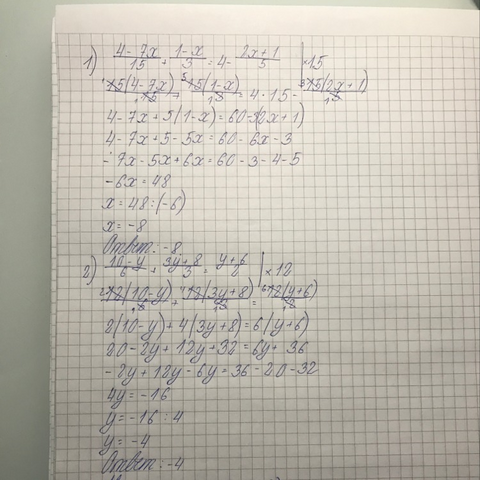 1) (4-7x)/15 + (1-x)/3 = 4 - (2x+1)/5 | ×15
15(4-7x)/15 + 15(1-x)/3 = 4·15 - 15(2x+1)/5
4-7x+5(1-x)=60-3(2x+1)
4-7x+5-5x=60-6x-3
-7x-5x+6x=60-3-4-5
-6x=48
x=48:(-6)
x=-8
Ответ: -8
2) (10-y)/6 + (3y+8)/3 = (y+6)/2 | ×12
12(10-y) + 12(3y+8) = 12(y+6)
2(10-y)+4(3y+8)=6(y+6)
20-2y+12y+32=6y+36
-2y+12y-6y=36-20-32
4y=-16
y=-16:4
y=-4
Ответ: -4